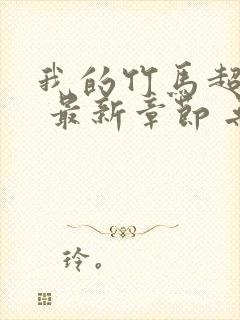 我的竹马超
最新章节
玲。